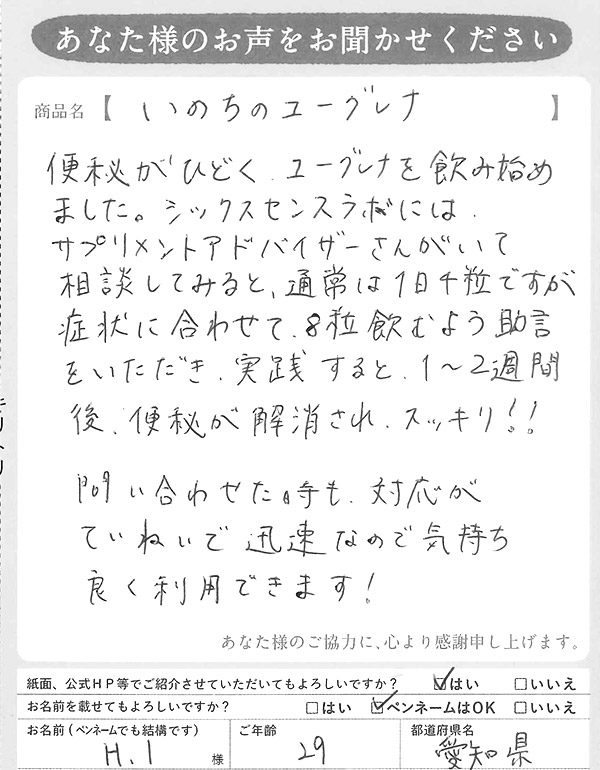 あなた様のお声をお聞かせください
商品名【 いのちのユーグレナ 】
便秘がひどく、ユーグレナを飲み始め
ました。シックスセンスラボには、
サプリメントアドバイザーさんがいて
相談してみると、通常は1日4粒ですが
症状に合わせて、8粒飲むよう助言
をいただき、実践すると、1～2週間
後、便秘が解消され、スッキリ!!
問い合わせた時も、対応が
ていねいで迅速なので気持ち
良く利用できます!
あなた様のご協力に、心より感謝申し上げます。
紙面、公式HP等でご紹介させていただいてもよろしいですか? ☑はい □いいえ
お名前を載せてもよろしいですか? □はい ☑ペンネームはOK □いいえ
お名前(ペンネームでも結構です) ご年齢 都道府県名
H.I 様 29 愛知県